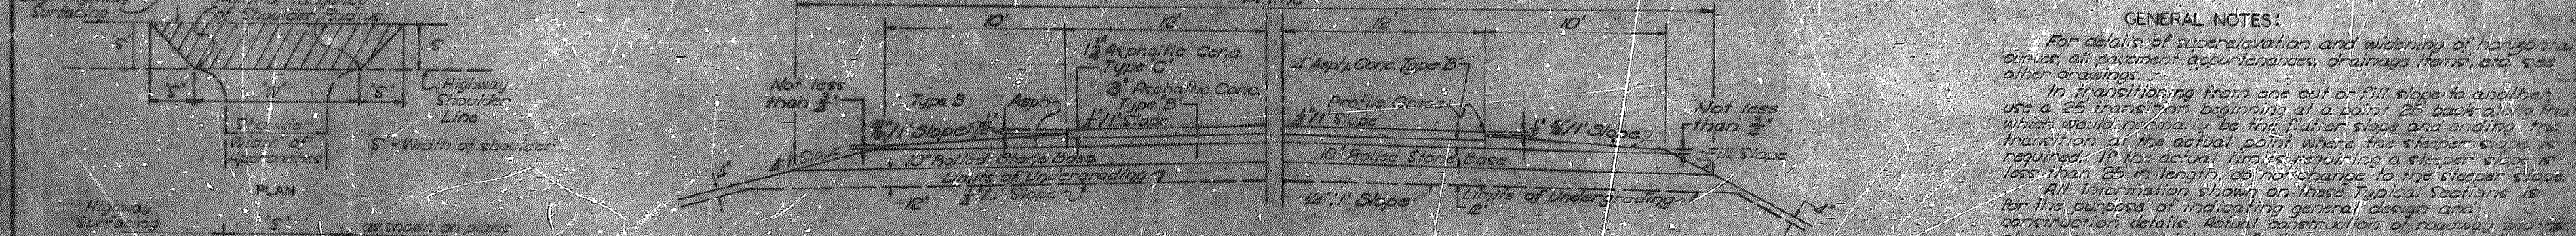 Surfacing
of Shoulder Radius
S'
S'
"S"
"W"
"S"
Highway
Shoulder
Line
Width of
Approaches
"S" = Width of shoulder
PLAN
Highway
Surfacing
"S"
as shown on plans
10'
12'
12'
10'
1½" Asphaltic Conc.
Type "C"
3" Asphaltic Conc.
Type "B"
4" Asph. Conc. Type "B"
Not less
than ¾"
Type B
Asph.
Profile Grade
Not less
than ¾"
Slope
Slope
4:1 Slope
Fill Slope
10" Rolled Stone Base
10" Rolled Stone Base
Limits of Undergrading
Limits of Undergrading
12"
Slope
¼":1' Slope
12"
4"
4"
GENERAL NOTES:
For details of superelevation and widening of horizontal
curves, all pavement appurtenances, drainage items, etc. see
other drawings.
In transitioning from one cut or fill slope to another,
use a 25' transition beginning at a point 25' back along the
which would normally be the flatter slope and ending the
transition at the actual point where the steeper slope is
required. If the actual limits requiring a steeper slope is
less than 25' in length, do not change to the steeper slope.
All information shown on these Typical Sections is
for the purpose of indicating general design and
construction details. Actual construction of roadway widths